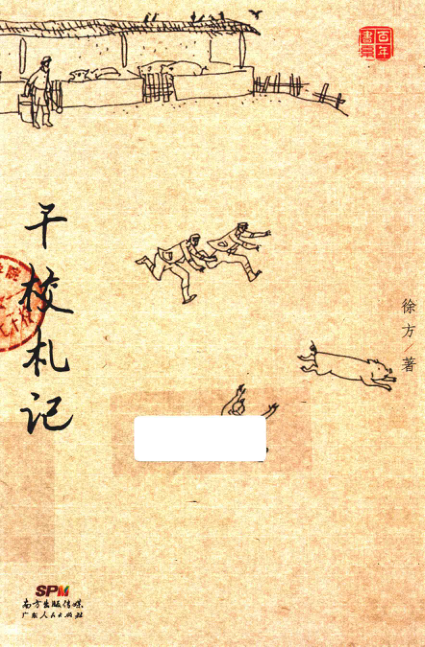 百年
書系
干校札记
徐方／著
SPM
南方出版传媒
广东人民出版社